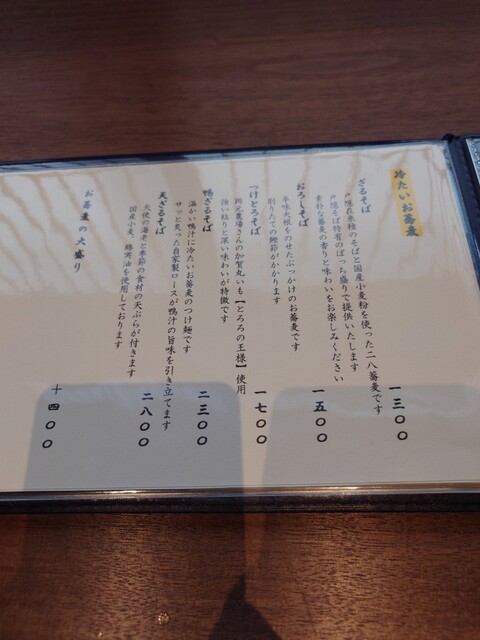 冷たいお蕎麦
ざるそば
戸隠在来種のそばと国産小麦粉を使った二八蕎麦です
戸隠そば特有のぼっち盛りで提供いたします
素朴な蕎麦の香りと味わいをお楽しみください
一三〇〇
おろしそば
辛味大根をのせたぶっかけのお蕎麦です
削りたての鰹節がかかります
一五〇〇
つけとろそば
岡元農場さんの加賀丸いも【とろろの王様】使用
強い粘りと深い味わいが特徴です
一七〇〇
鴨ざるそば
温かい鴨汁に冷たいお蕎麦のつけ麺です
サッと炙った自家製ロースが鴨汁の旨味を引き立てます
二三〇〇
天ざるそば
天使の海老と季節の食材の天ぷらが付きます
国産小麦、綿実油を使用しております
二八〇〇
お蕎麦の大盛り
+四〇〇